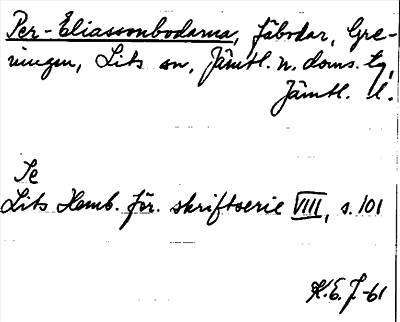 Per-Eliassonbodarna, fäbodar, Gre-
ningen, Lits sn, Jämtl. n. doms. tg,
Jämtl. l.
Se
Lits Hemb. för. skriftserie VIII, s. 101
K.E.J-61